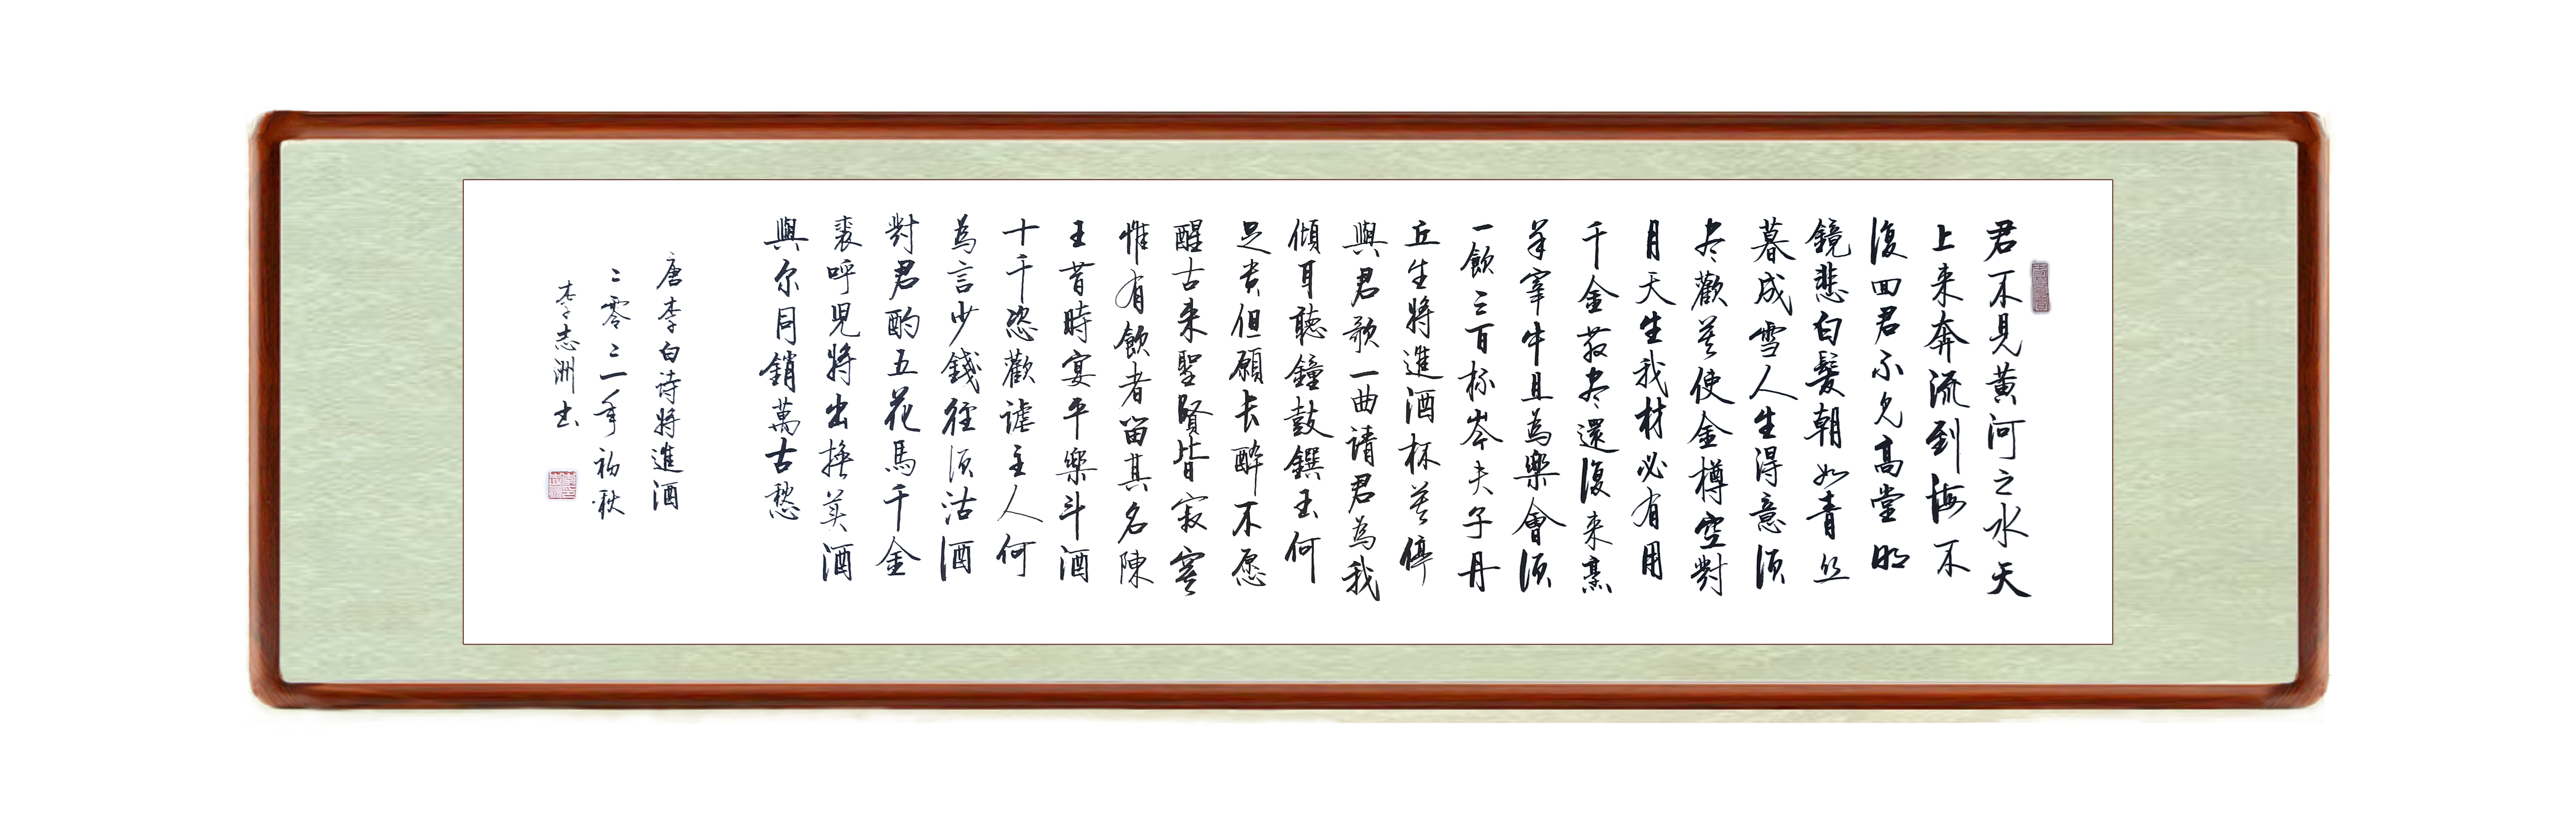 君不見黃河之水天
上来奔流到海不
復回君不見高堂明
鏡悲白髮朝如青丝
暮成雪人生得意須
尽歡莫使金樽空對
月天生我材必有用
千金散尽還復来烹
羊宰牛且為樂會須
一飲三百杯岑夫子丹
丘生將進酒杯莫停
與君歌一曲请君為我
傾耳聽鐘鼓饌玉何
足貴但願长醉不愿
醒古来聖賢皆寂寞
惟有飲者留其名陳
王昔時宴平樂斗酒
十千恣歡謔主人何
為言少錢徑須沽酒
對君酌五花馬千金
裘呼児將出换美酒
與尔同銷萬古愁
唐李白诗將進酒
二零二一年初秋
李志洲书